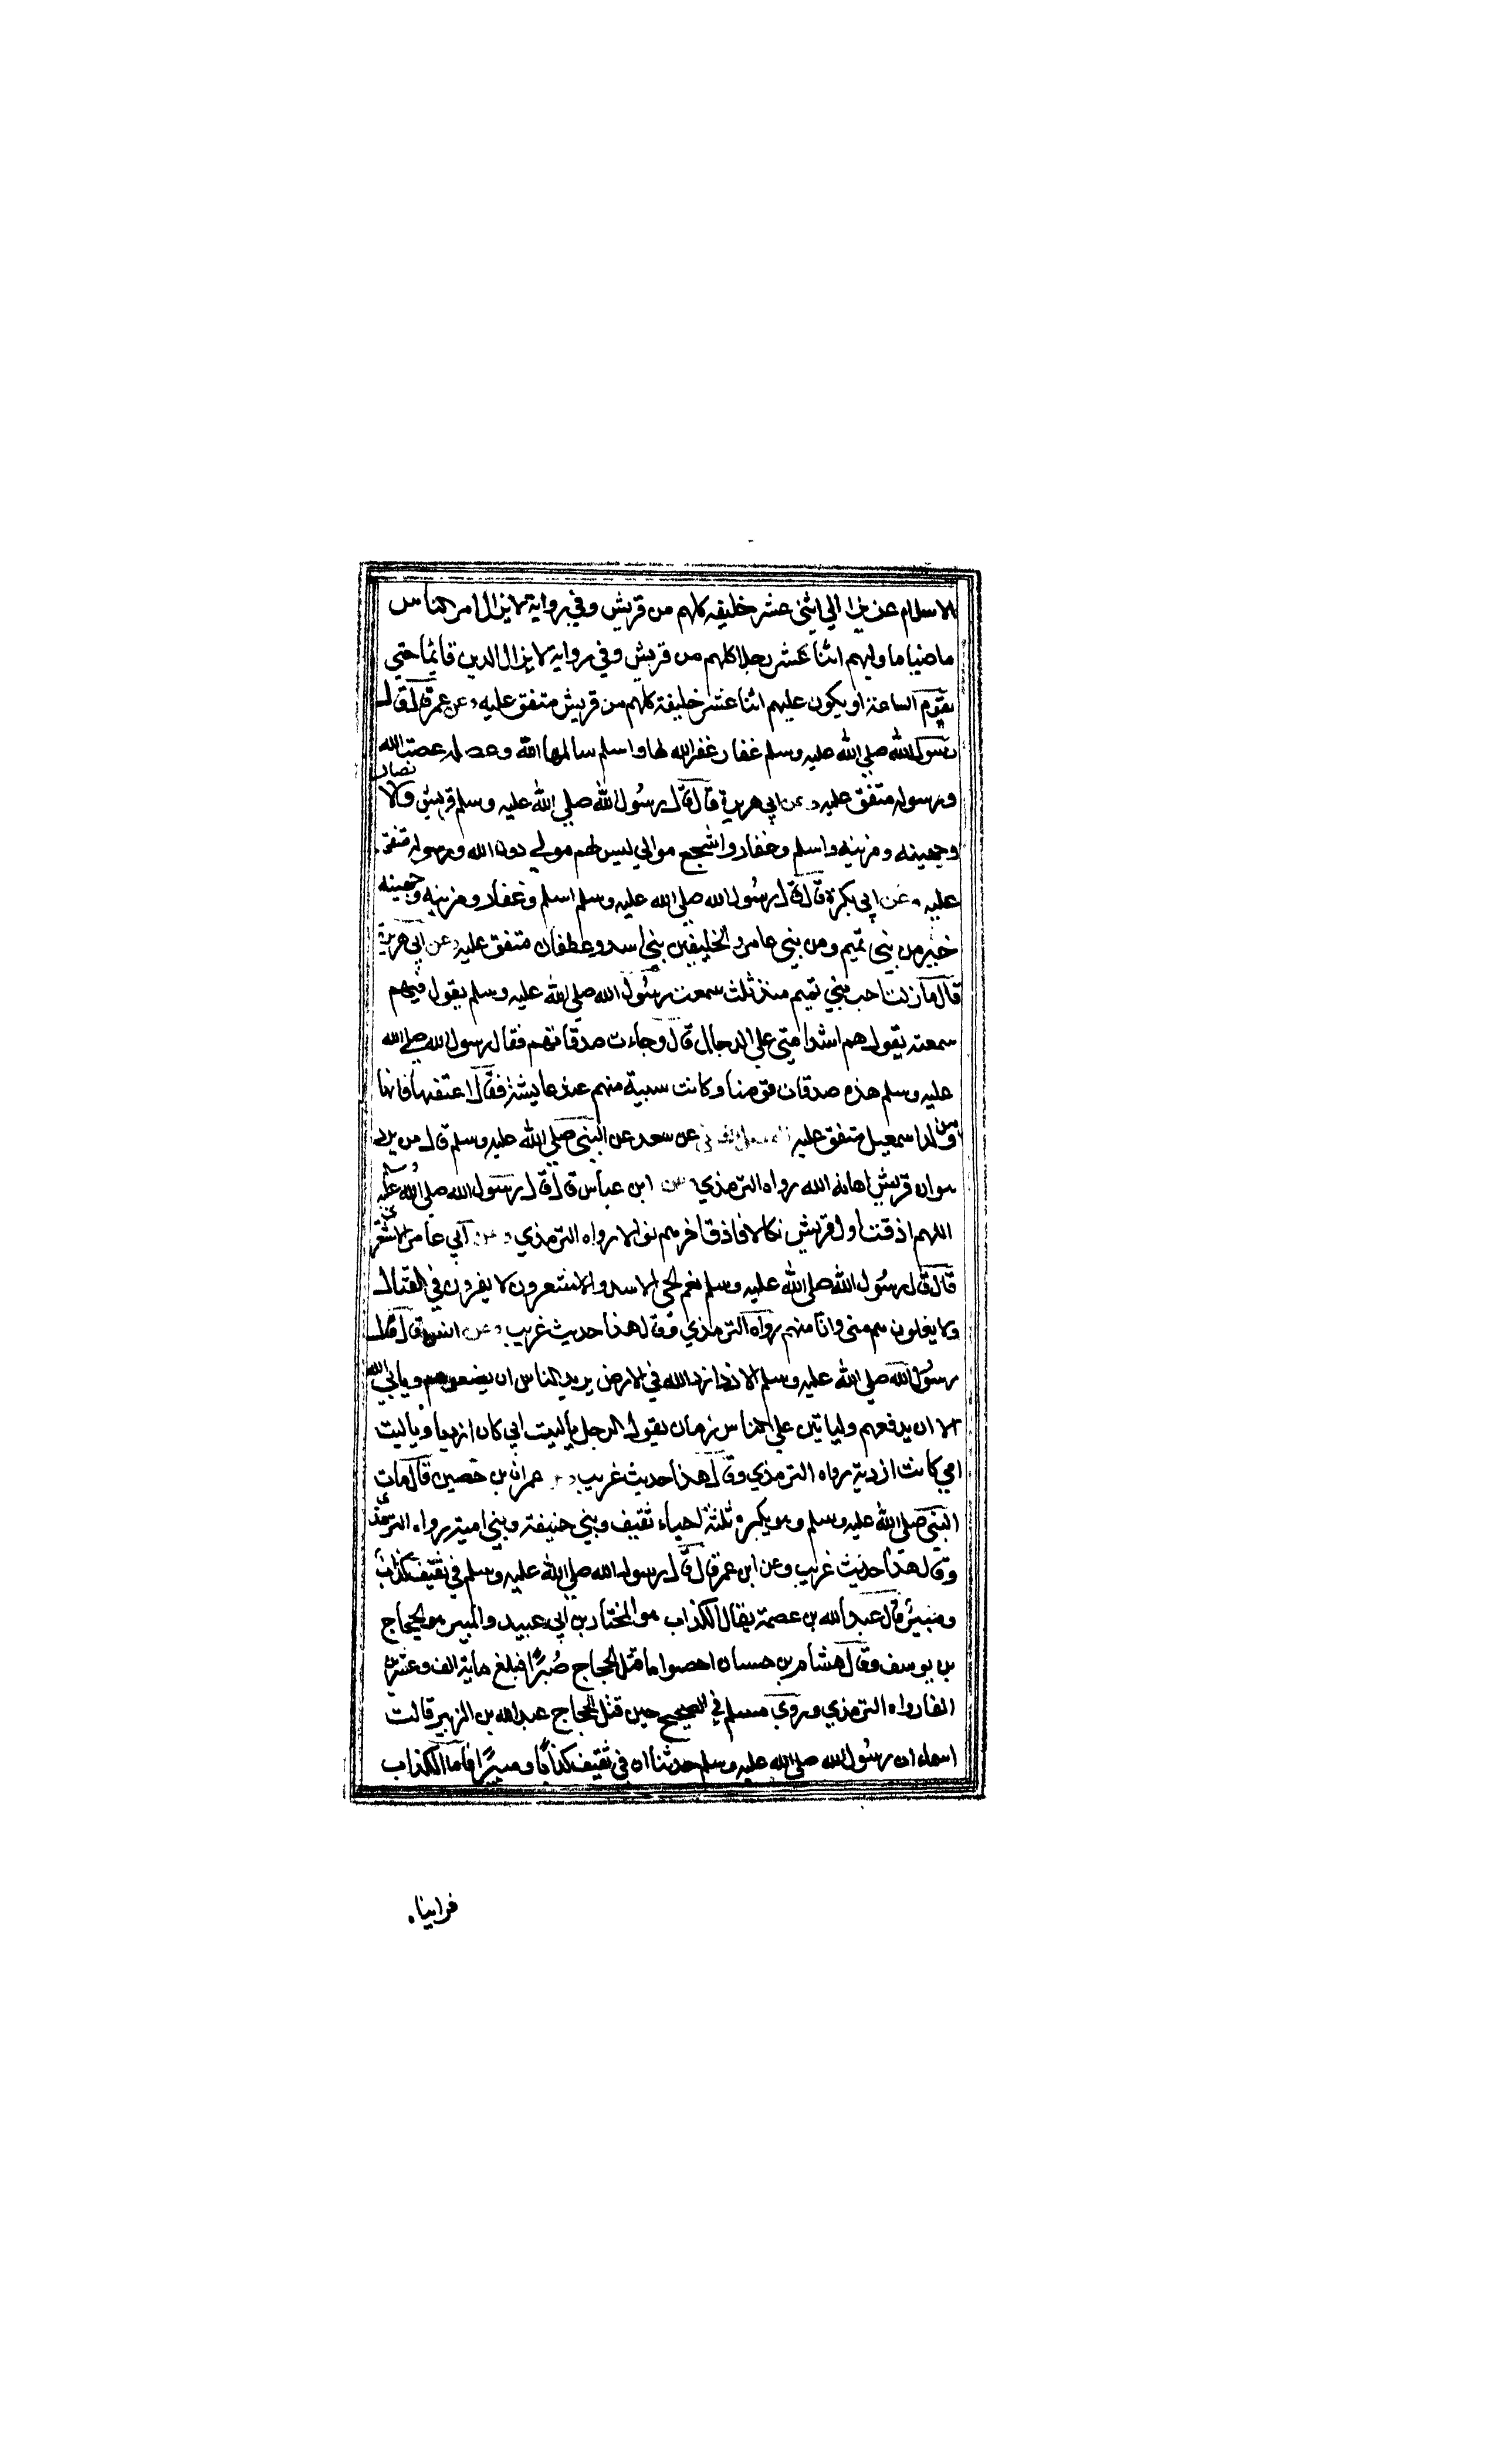 الاسلام عزيزا الي اثني عشر خليفه كلهم من قريش وفي رواية لا يزال امر الناس
ماضيا ما وليهم اثنا عشر رجلا كلهم من قريش وفي روايه لا يزال الدين قائما حتي
تقوم الساعة او يكون عليهم اثنا عشر خليفة كلهم من قريش متفق عليه وعن ابن عمر قال قال
رسول الله صلي الله عليه وسلم غفار غفر الله لها واسلم سالمها الله وعصيه عصت الله
ورسوله متفق عليه وعن ابي هريرة قال قال رسول الله صلي الله عليه وسلم قريش والانصار
وجهينه ومزينه واسلم وغفار واشجع موالي ليس لهم مولي دون الله ورسوله متفق
عليه وعن ابي بكرة قال قال رسول الله صلي الله عليه وسلم اسلم وغفار ومزينه وجهينه
خير من بني تميم ومن بني عامر والحليفين بني اسد وغطفان متفق عليه وعن ابي هريرة
قال ما زلت احب بني تميم منذ ثلث سمعت رسول الله صلي الله عليه وسلم يقول فيهم
سمعته يقول هم اشد امتي علي الدجال قال وجاءت صدقاتهم فقال رسول الله صلي الله
عليه وسلم هذه صدقات قومنا وكانت سبية منهم عند عايشة فقال اعتقيها فانها
من ولد اسمعيل متفق عليه عن سعد عن النبي صلي الله عليه وسلم قال من يرد
هوان قريش اهانه الله رواه الترمذي وعن ابن عباس قال قال رسول الله صلي الله عليه وسلم
اللهم اذقت اول قريش نكالا فاذق اخرهم نوالا رواه الترمذي وعن ابي عامر الاشعري
قال قال رسول الله صلي الله عليه وسلم نعم الحي الاسد والاشعرون لا يفرون في القتال
ولا يغلون هم مني وانا منهم رواه الترمذي وقال هذا حديث غريب وعن انس قال قال
رسول الله صلي الله عليه وسلم الازد ازد الله في الارض يريد الناس ان يضعوهم ويابي الله
الا ان يرفعهم ولياتين علي الناس زمان يقول الرجل يا ليت ابي كان ازديا ويا ليت
امي كانت ازدية رواه الترمذي وقال هذا حديث غريب وعن عمران بن حصين قال مات
النبي صلي الله عليه وسلم وهو يكره ثلثة احياء ثقيف وبني حنيفة وبني امية رواه الترمذي
وقال هذا حديث غريب وعن ابن عمر قال قال رسول الله صلي الله عليه وسلم في ثقيف كذاب
ومبير قال عبد الله بن عصمة يقال الكذاب هو المختار بن ابي عبيد والمبير هو الحجاج
بن يوسف وقال هشام بن حسان احصوا ما قتل الحجاج صبرا فبلغ ماية الف وعشرين
الفا رواه الترمذي وروي مسلم في الصحيح حين قتل الحجاج عبد الله بن الزبير قالت
اسماء ان رسول الله صلي الله عليه وسلم حدثنا ان في ثقيف كذابا ومبيرا فاما الكذاب
فرايناه